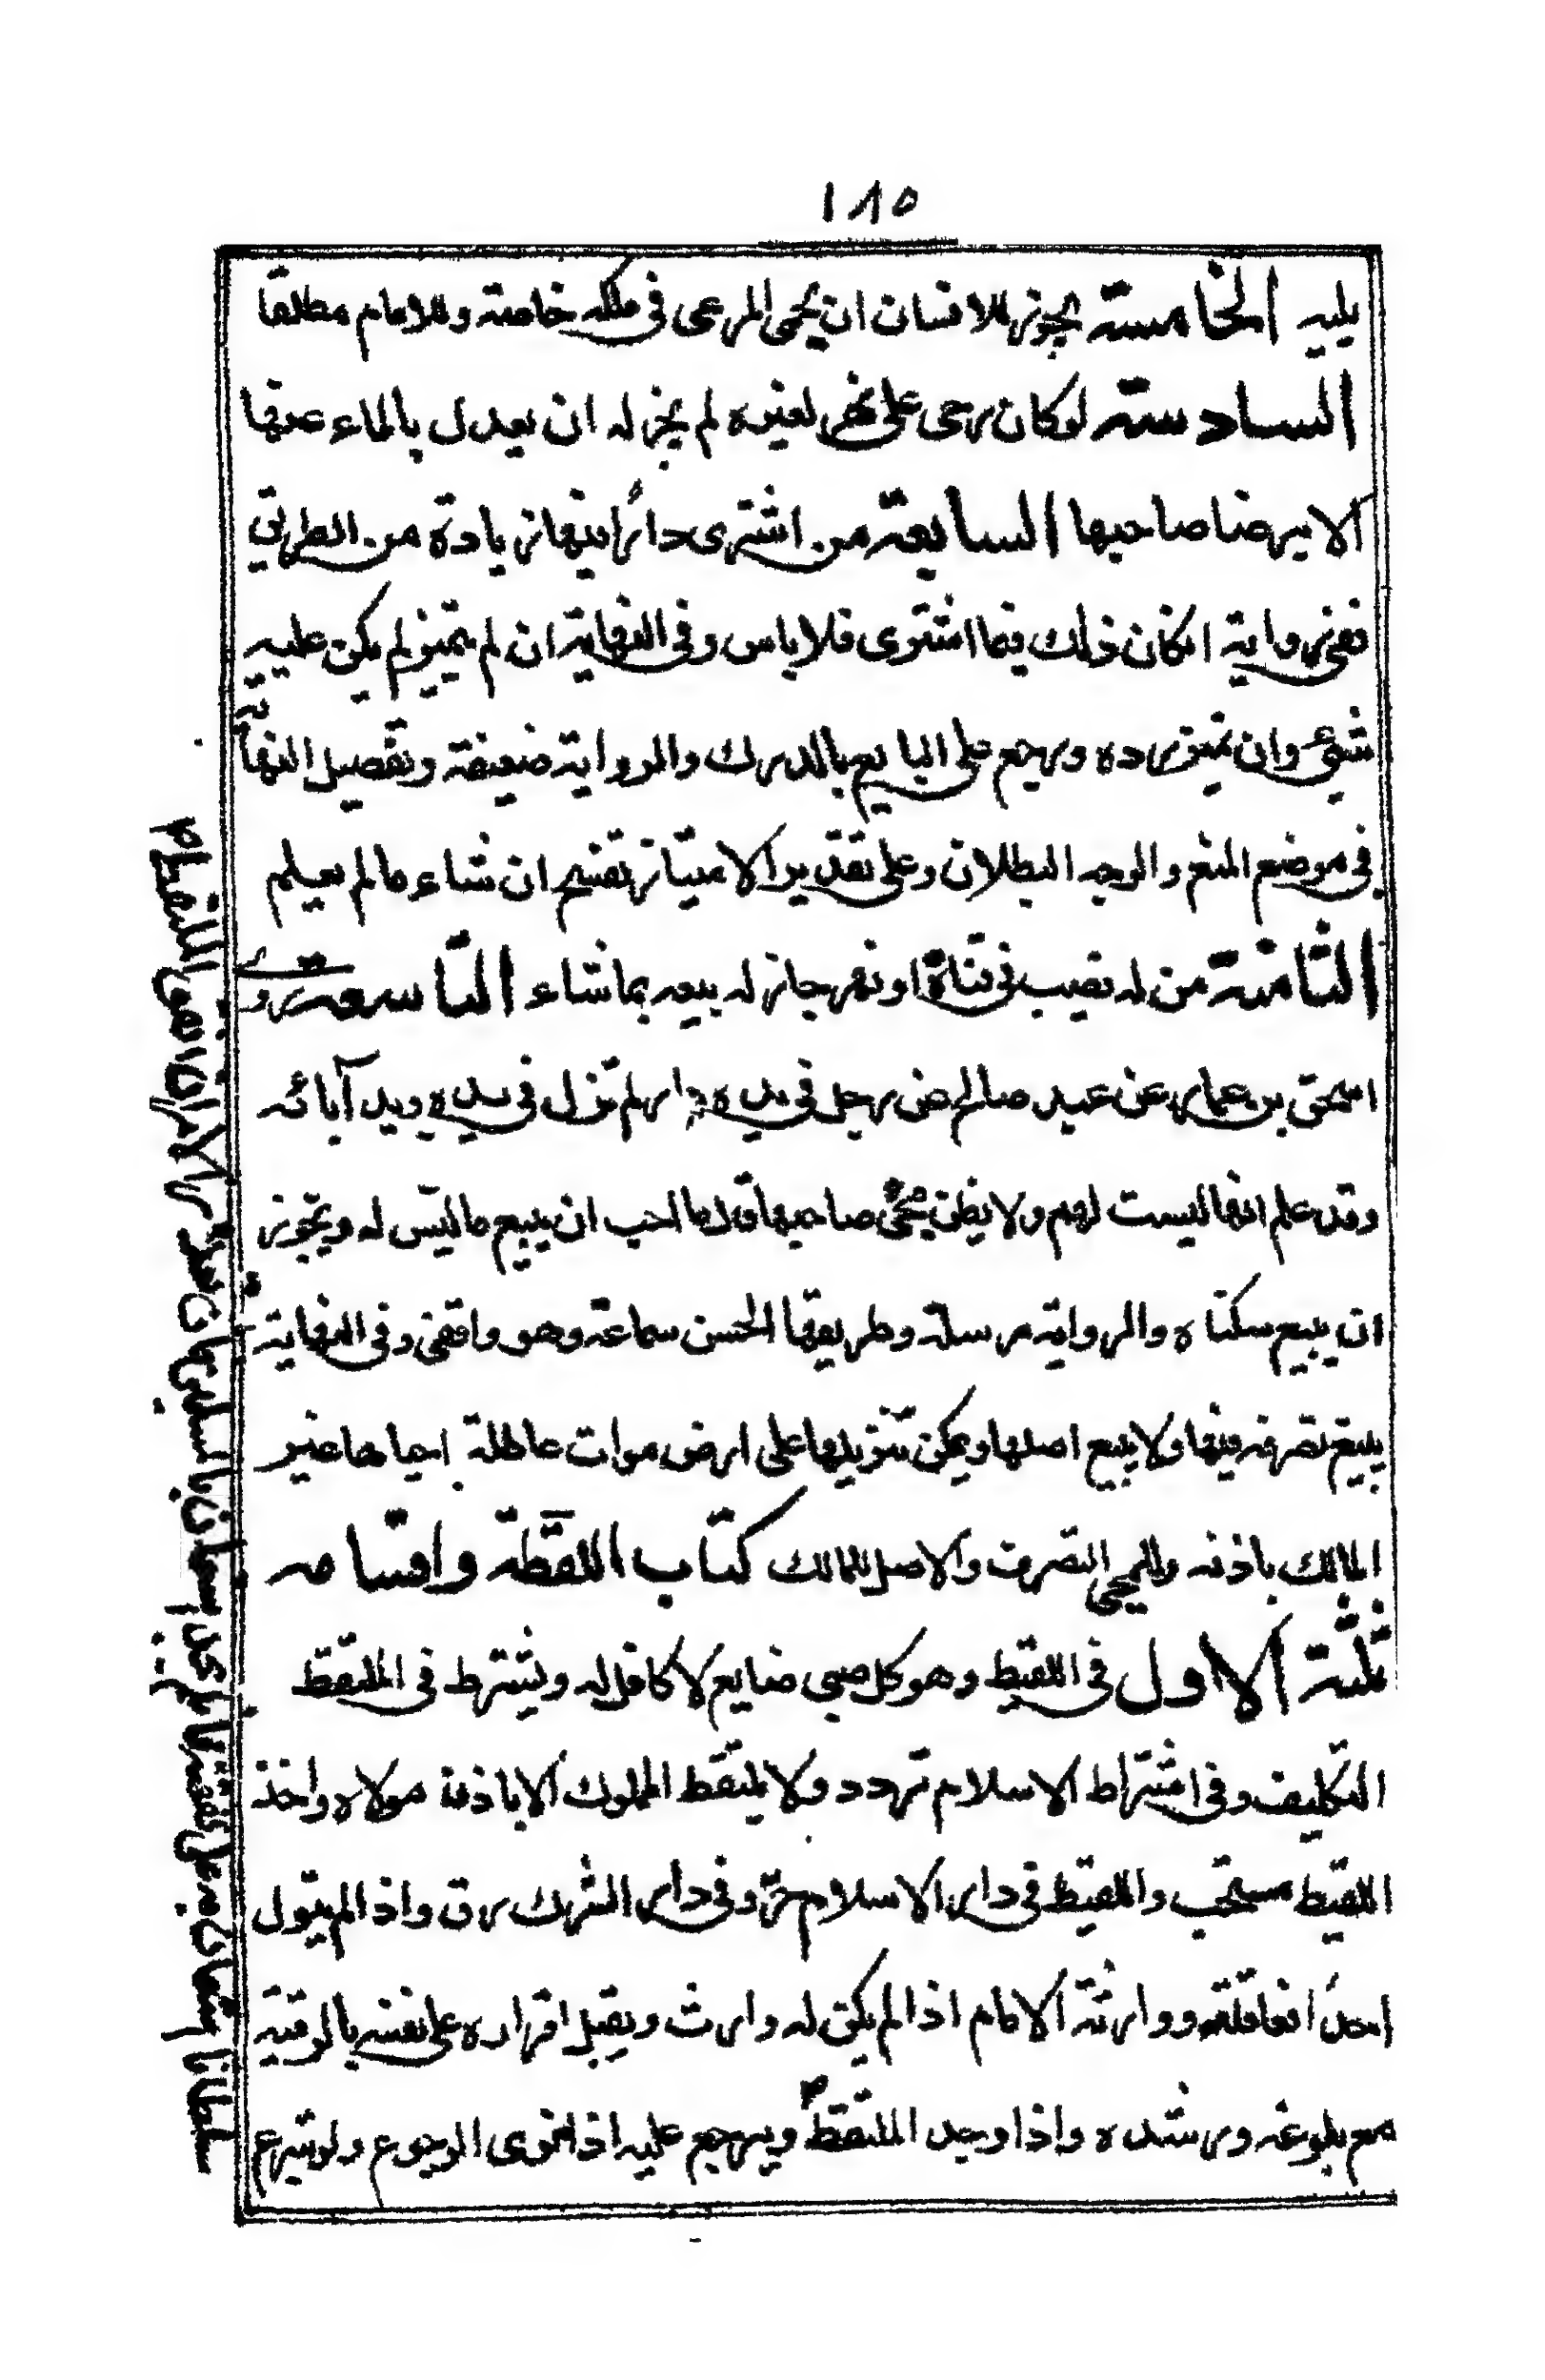 ١٨٥
يليه الخامسة يجوز للانسان ان يحمى المرعى فى ملكه خاصة وللامام مطلقا
السادسة لو كان رحى على نهر لغيره لم يجز له ان يعدل بالماء عنها
الا برضا صاحبها السابعة من اشترى دارًا فيها زيادة من الطريق
ففى رواية ان كان ذلك فيما اشترى فلا باس وفى النهاية ان لم يتميز لم يكن عليه
شئ وان تميز رده ورجع على البايع بالدرك والرواية ضعيفة وتفصيل النهاية
فى موضع المنع والوجه البطلان وعلى تقدير الامتياز يفسخ ان شاء ما لم يعلم
الثامنة من له نصيب فى قناة او نهر جاز له بيعه بما شاء التاسعة روى
اسحق بن عمار عن عبد صالح عن رجل فى يده دار لم تزل فى يده ويد آبائه
وقد علم انها ليست لهم ولا يظن مجئ صاحبها قال ما احب ان يبيع ما ليس له ويجوز
ان يبيع سكناه والرواية مرسلة وطريقها الحسن سماعة وهو واقفى وفى النهاية
يبيع تصرفه فيها ولا يبيع اصلها ويمكن تنزيلها على ارض موات عاطلة احياها غير
المالك باذنه وللمحيى التصرف والاصل للمالك كتاب اللقطة واقسامه
ثلثة الاول فى اللقيط وهو كل صبى ضايع لا كافل له ويشترط فى الملتقط
التكليف وفى اشتراط الاسلام تردد ولا يلتقط المملوك الا باذن مولاه واخذ
اللقيط مستحب واللقيط فى دار الاسلام حرّ وفى دار الشرك رق واذا لم يتول
احدًا فعاقلته ووارثه الامام اذا لم يكن له وارث ويقبل اقراره على نفسه بالرقية
مع بلوغه ورشده واذا وجد الملتقط ويرجع عليه اذا نوى الرجوع ولو تبرع